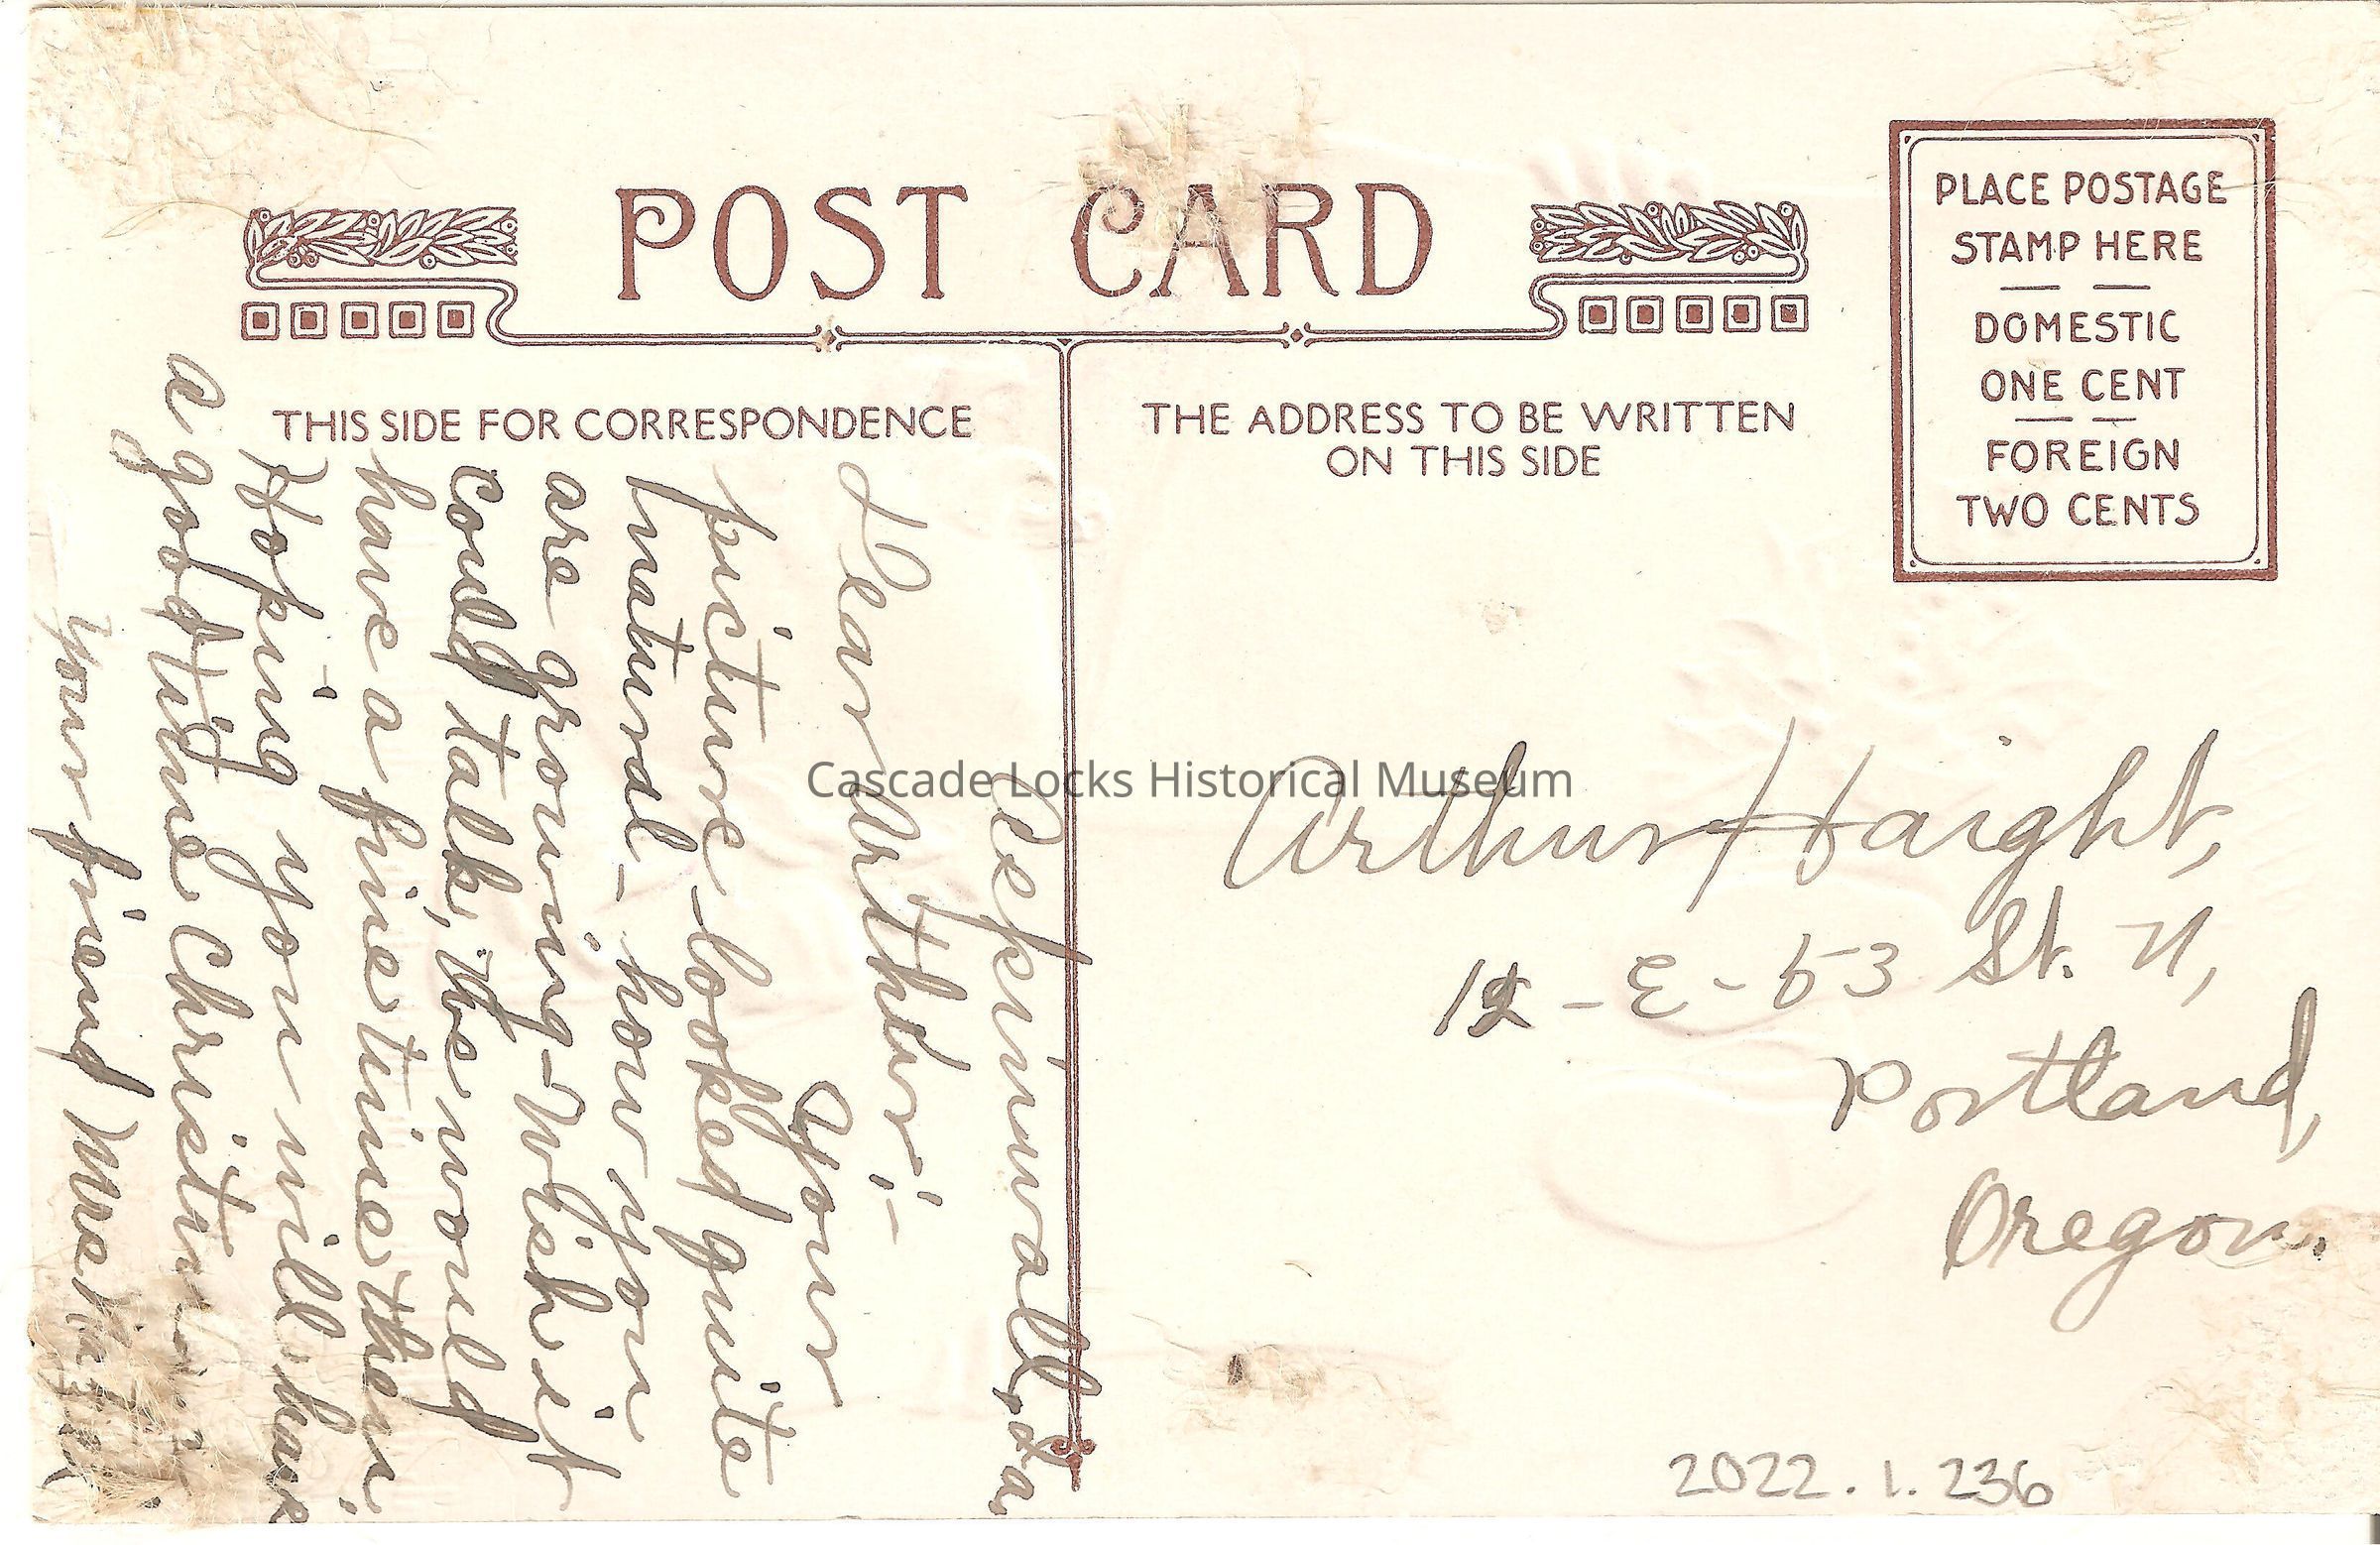 POST CARD
PLACE POSTAGE
STAMP HERE
DOMESTIC
ONE CENT
FOREIGN
TWO CENTS
THIS SIDE FOR CORRESPONDENCE
THE ADDRESS TO BE WRITTEN
ON THIS SIDE
Aspinwall, Ia.
Dear Arthur:-
Your
picture looked quite
natural - how you
are growing - Wish it
could talk, we would
have a fine time then.
Hoping you will have
a good time Christmas
Your friend
Arthur Haight,
12 - E - 53 St. N,
Portland,
Oregon.
Cascade Locks Historical Museum
2022.1.236